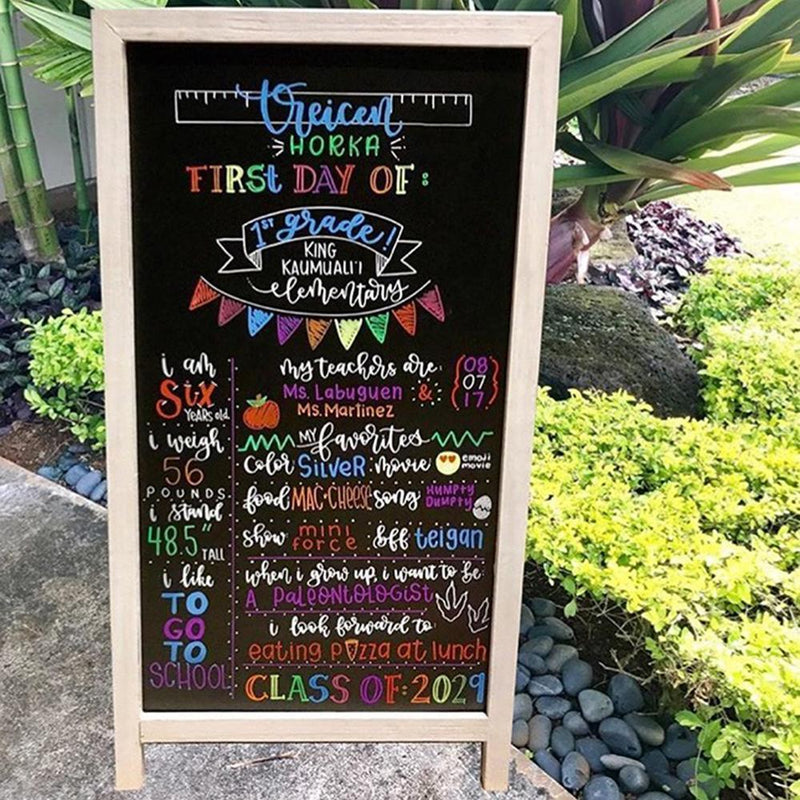 Treicen
HORKA
FIRST DAY OF:
1ST grade!
KING
KAUMUALI'I
elementary
i am
SIX
YEARS old
i weigh
56
POUNDS
i stand
48.5" TALL
i like
TO
GO
TO
SCHOOL
my teachers are:
Ms. Labuguen &
Ms. Martinez
08
07
17
MY favorites
color SILVER movie emoji movie
food MAC-CHEESE song HUMPTY DUMPTY
show mini force bff teigan
when i grow up, i want to be:
A PALEONTOLOGIST
i look forward to
eating pizza at lunch
CLASS OF: 2029